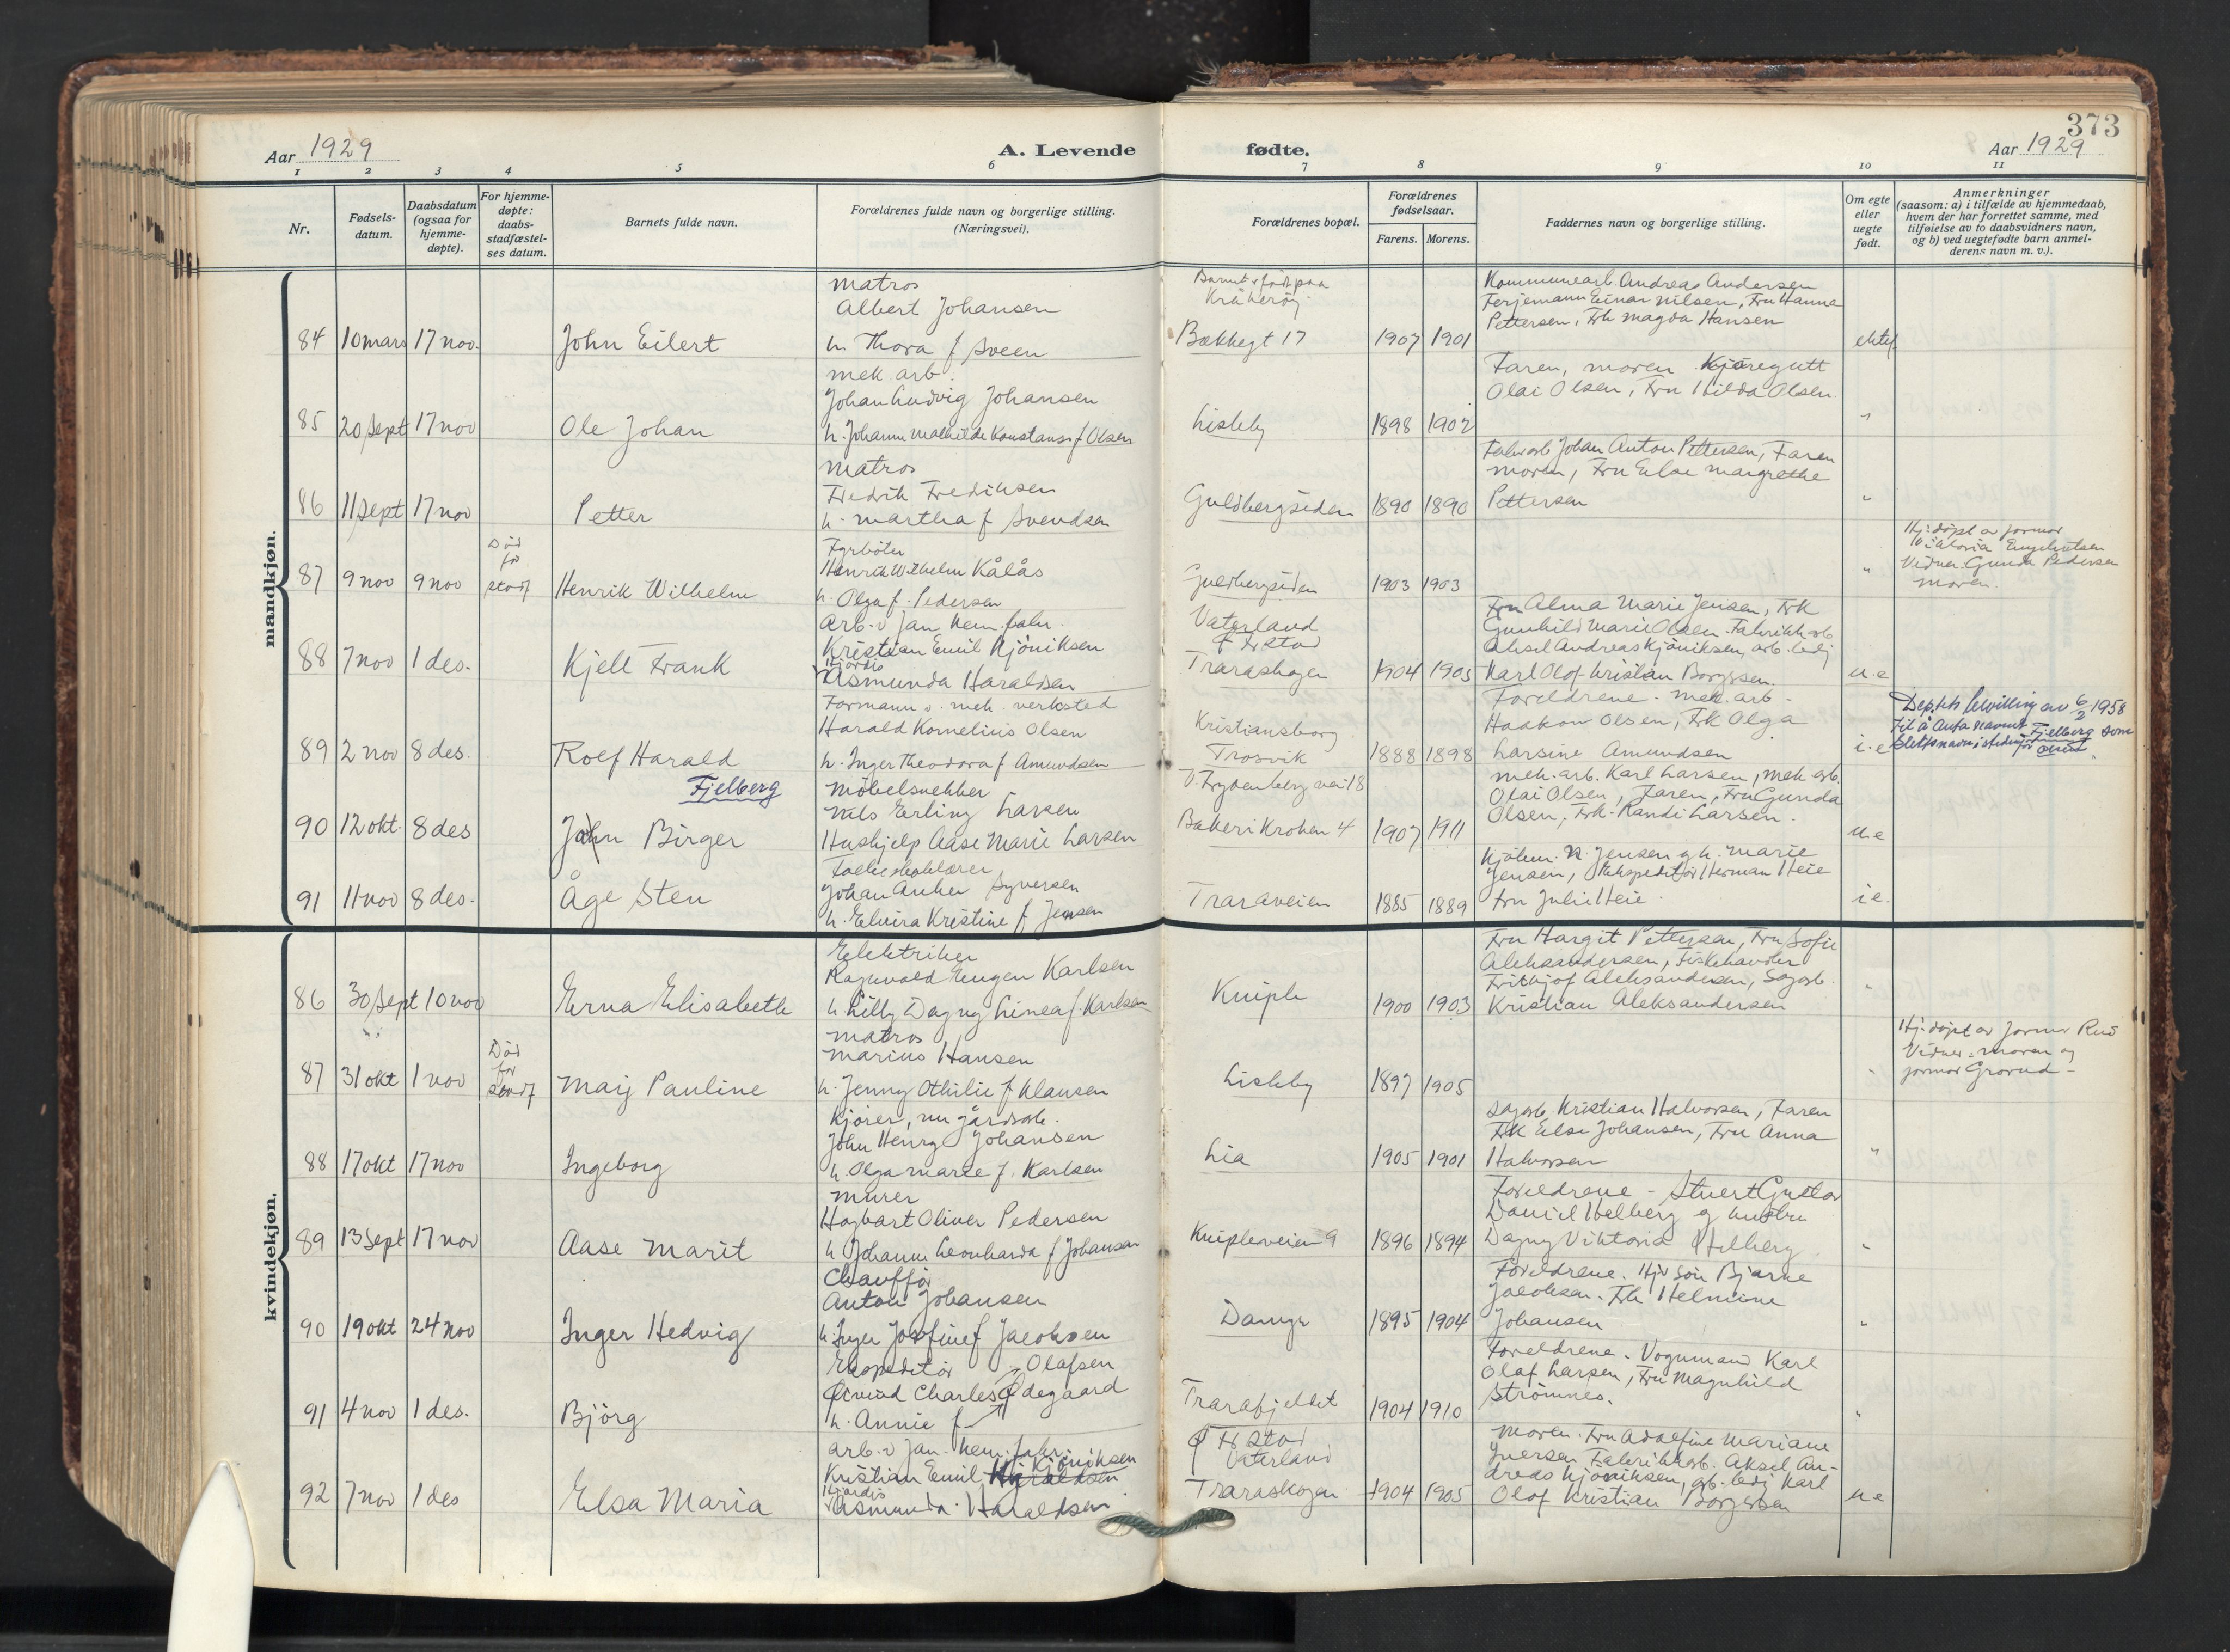 373
Aar 1929
A. Levende fødte.
Aar 1929
1 2 3 4 5 6 7 8 9 10 11
Nr.
Fødsels-
datum.
Daabsdatum
(ogsaa for
hjemme-
døpte).
For hjemme-
døpte:
daabs-
stadfæstel-
ses datum.
Barnets fulde navn.
Forældrenes fulde navn og borgerlige stilling.
(Næringsvei).
Forældrenes bopæl.
Forældrenes
fødselsaar.
Farens. Morens.
Faddernes navn og borgerlige stilling.
Om egte
eller
uegte
født.
Anmerkninger
(saasom: a) i tilfælde av hjemmedaab,
hvem der har forrettet samme, med
tilføielse av to daabsvidners navn,
og b) ved uegtefødte barn anmel-
derens navn m. v.).
mandkjøn.
84 10 mars 17 nov. John Eilert
Matros
Albert Johansen
h. Thora f Sveen
Barnet født paa
Kråkerøy.
Bækkegt 17
1907 1901
Kommunearb. Andreas Andersen
Ferjemann Einar Nilsen, Fru Hanna
Pettersen, Frk Magda Hansen
ektef.
85 20 Sept 17 nov Ole Johan
mek arb.
Johan Ludvig Johansen
h. Johanne Mathilde Konstanse f Olsen
Lisleby
1898 1902
Faren, moren Kjøregutt
Olai Olsen, Fru Hilda Olsen.
"
86 11 Sept 17 nov Petter
Matros
Fredrik Fredriksen
h. Martha f Svendsen
Guldbergsiden
1890 1890
Fabr arb Johan Anton Pettersen, Faren
moren, Fru Else Margrethe
Pettersen
"
87 9 nov 9 nov
Död
før
stadf
Henrik Wilhelm
Fyrböter
Henrik Wilhelm Kålås
h. Olga f. Pedersen
Guldbergsiden
1903 1903
"
Hj. døpt av jormor
Viktoria Engebretsen
Vidner. Gunda Pedersen
moren.
88 7 nov 1 des. Kjell Frank
Arb. v Jan. kem. fabr.
Kristian Emil Kjöniksen
Hjördis
Asmunda Haraldsen
Vaterland
Fr.stad
Traraskogen
1904 1905
Fru Alma Marie Jensen, Frk
Gunhild Marie Olsen. Fabrikk arb
Aksel Andreas Kjöniksen, arb. ledj
Karl Olof Kristian Borgersen.
u.e
89 2 nov 8 des. Rolf Harald
Fjelberg
Formann v. mek. verksted
Harald Kornelius Olsen
h. Inger Theodora f Amundsen
Kristiansborg
Trosvik
1888 1898
Foreldrene. Mek. arb.
Haakon Olsen, Frk Olga
Larsine Amundsen
i.e
Dep.ts bevilling av 6/2 1958
til å anta navnet Fjelberg som
slektsnavn istedenfor Olsen.
90 12 okt. 8 des John Birger
Möbelsnekker
Nils Erling Larsen
Hushjelp Aase Marie Larsen
V. Frydenberg vei 18
Bakerikroken 4
1907 1911
mek. arb. Karl Larsen, mek arb.
Olai Olsen, Faren, Fru Gunda
Olsen, Frk. Randi Larsen.
u.e
91 11 nov 8 des. Åge Sten
Johan Anker Syversen
h. Elvira Kristine f Jensen
Traraveien
1885 1889
Kjøbm. N. Jensen og h. Marie
Jensen, Ekspeditør Herman Heie
Fru Julie Heie.
i e.
kvindekjøn.
86 30 Sept 10 nov Erna Elisabeth
Elektriker
Ragnvald Eugen Karlsen
h. Lilly Dagny Linea f. Karlsen
Kniple
1900 1903
Fru Margit Pettersen, Fru Sofie
Aleksandersen, Fiskehandler
Frithjof Aleksandersen, Sagarb.
Kristian Aleksandersen
"
87 31 okt 1 nov
Död
før
stadf
Maij Pauline
Matros
Marius Hansen
h. Jenny Othilie f Klausen
Lisleby
1897 1905
"
Hj. döpt av jormor Rud
Vidner. moren og
jormor Grorud
88 17 okt 17 nov Ingeborg
Kjører, nu gårdsarb.
John Henry Johansen
h. Olga Marie f. Karlsen
Lia
1905 1901
Sagarb. Kristian Halvorsen, Faren
Frk Else Johansen, Fru Anna
Halvorsen
"
89 13 Sept 17 nov Aase Marit
Murer
Hagbart Oliver Pedersen
h Johanne Leonharda f Johansen
Knipleveien 9
1896 1894
Foreldrene - Stuert Gustav
Daniel Helberg og hustru
Dagny Viktoria Helberg
"
90 19 okt 24 nov Inger Hedvig
Chauffør
Anton Johansen
h. Inger Josefine f Jacobsen
Damyr
1895 1904
Foreldrene. Hjv sön Bjarne
Jacobsen. Frk Helmine
Johansen
"
91 4 nov 1 des. Björg
Ekspeditör Olafsen
Øivind Charles Ødegaard
h. Annie f
Trarafjellet
1904 1910
Foreldrene. Vognmand Karl
Olaf Larsen, Fru Magnhild
Strömnes.
"
92 7 nov 1 des Elsa Maria
arb. v Jan. kem. fabr.
Kjöniksen
Kristian Emil Haraldsen
Hjördis
Asmunda Haraldsen
Fr.stad
Vaterland
Traraskogen
1904 1905
Moren. Fru Adolfine Mariane
Iversen Fabrikkarb. Aksel An-
dreas Kjöniksen, arb. ledj Karl
Olof Kristian Borgersen
u e